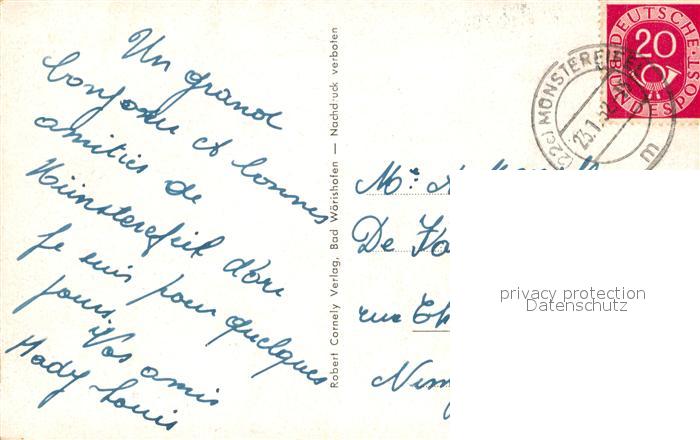 Un grand
bonjour et bonnes
amitiés de
Münstereifeil d'où
je suis pour quelques
jours.
Vos amis
Mady-Louis
Robert Cornely Verlag, Bad Wörishofen — Nachdruck verboten
DEUTSCHE BUNDESPOST
20
(22c) MÜNSTEREIFEL
23.1.52
m
Mr.
De
rue
privacy protection
Datenschutz